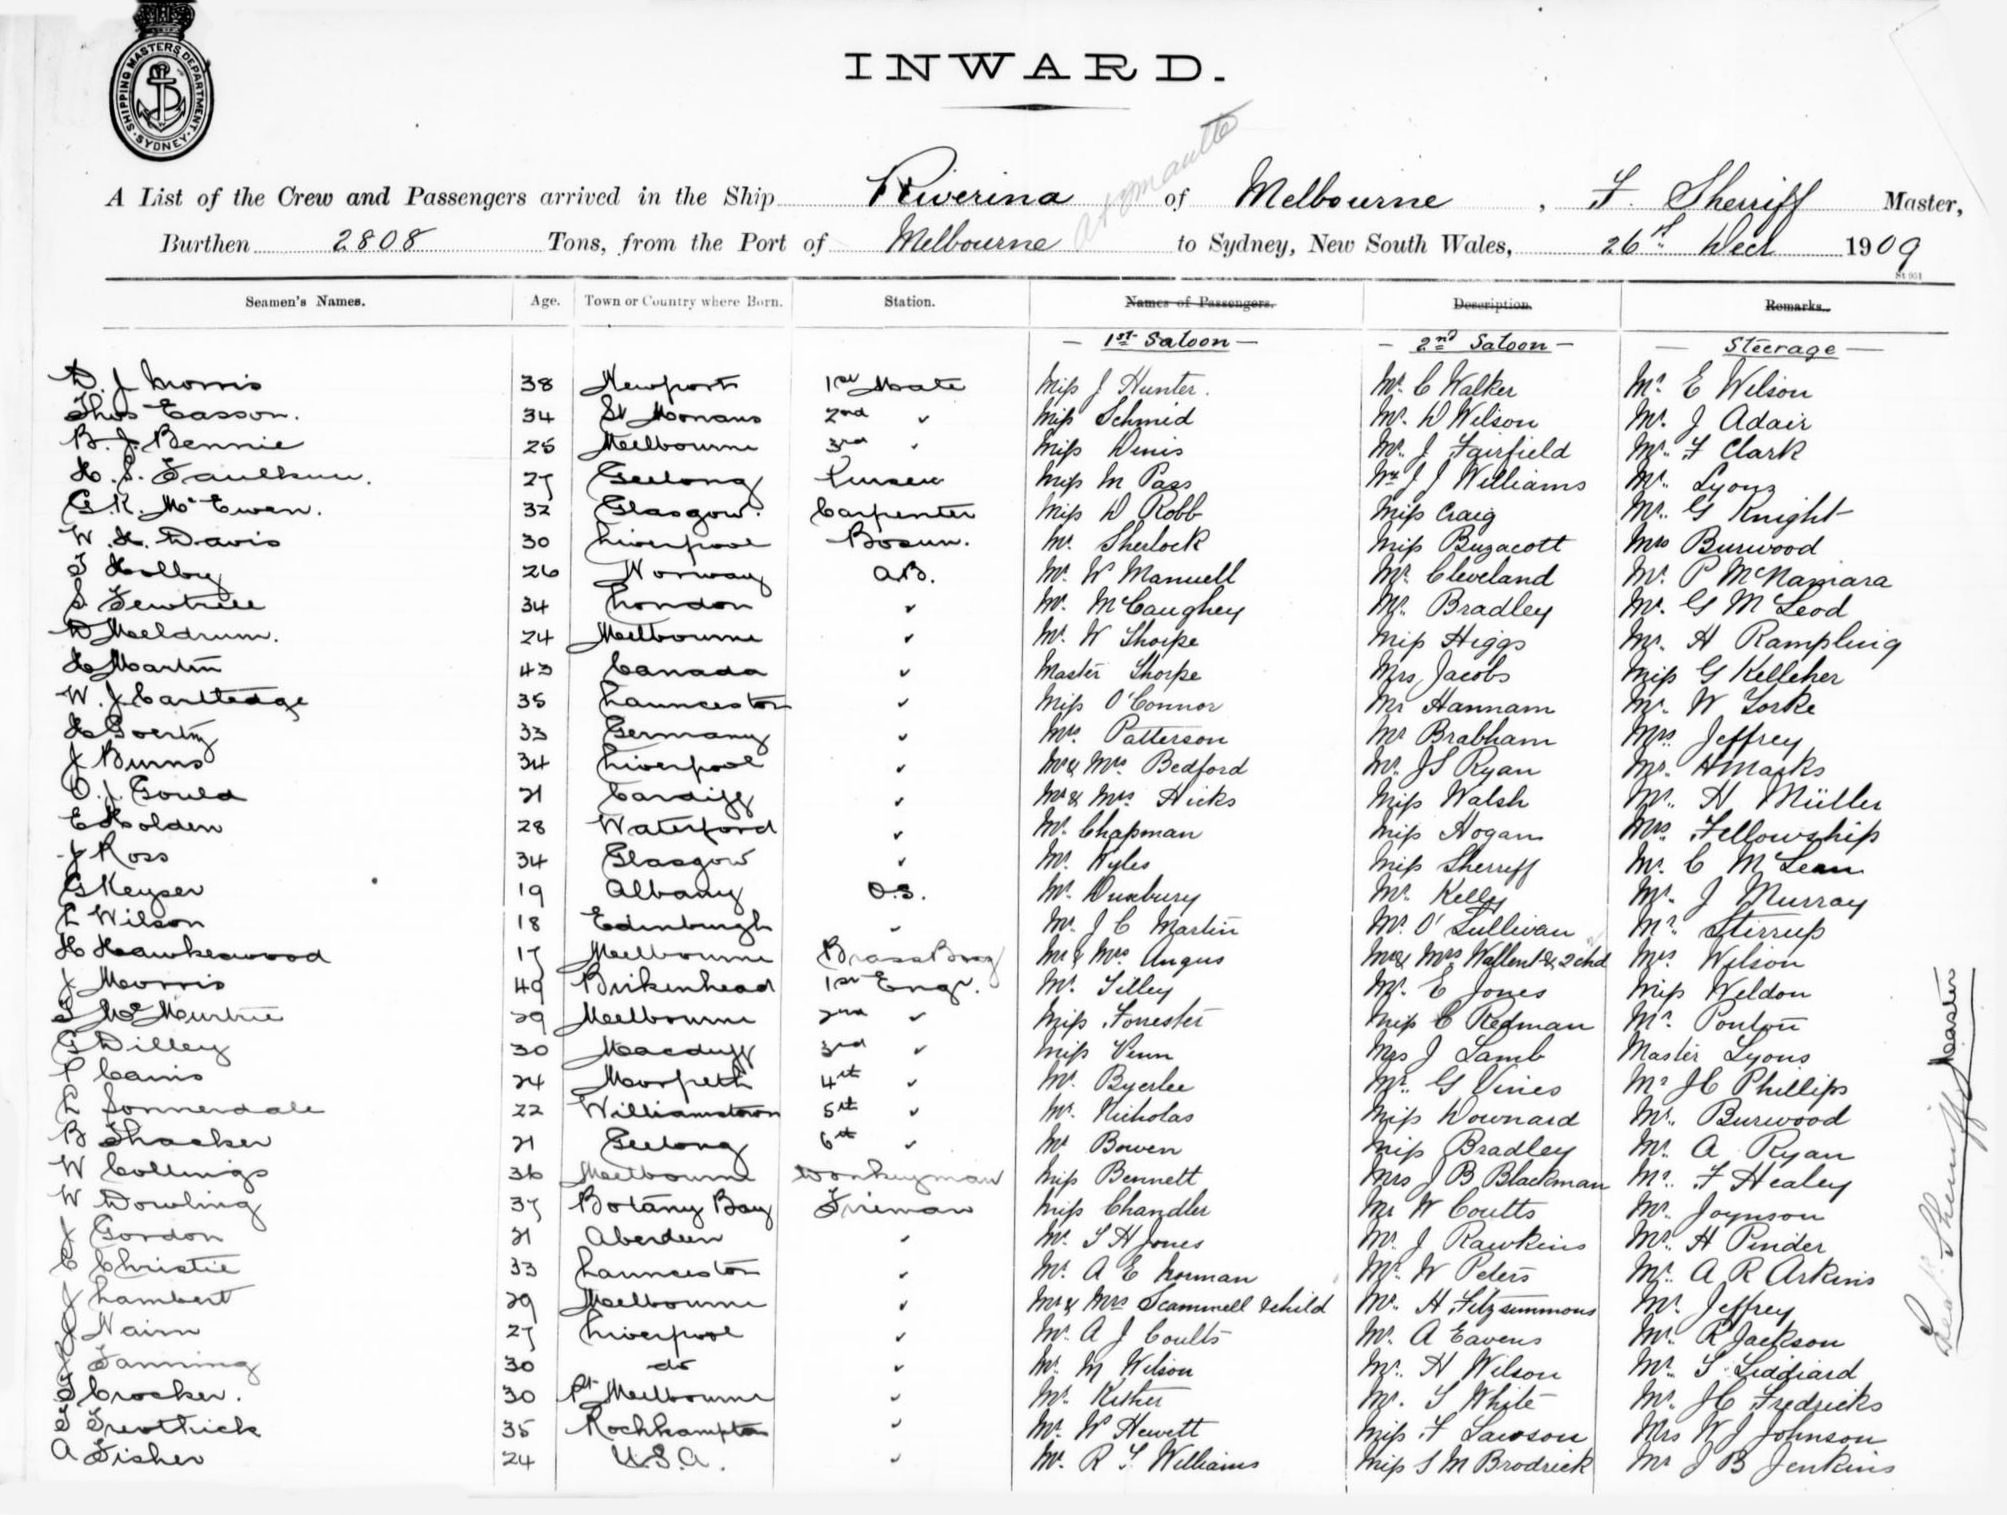 SHIPPING MASTERS DEPARTMENT · SYDNEY ·
INWARD.
A List of the Crew and Passengers arrived in the Ship Riverina of Melbourne, F. Sherriff Master,
Burthen 2808 Tons, from the Port of Melbourne to Sydney, New South Wales, 26th Decr 1909
St 951
Seamen's Names. Age. Town or Country where Born. Station. Names of Passengers. Description. Remarks.
— 1st Saloon — — 2nd Saloon — — Steerage —
D. J Morris 38 Newport 1st Mate Miss J Hunter. Mr. C Walker Mr E Wilson
Thos Easson. 34 St Monans 2nd ✓ Miss Schmid Mr. D Wilson Mr. J Adair
B. J. Bennie 25 Melbourne 3rd ✓ Miss Dinis Mr. J Fairfield Mr. F Clark
H. S. Faulkner. 27 Geelong Purser Miss M Pass Mr J J Williams Mr. Lyons
G. K. McEwen. 32 Glasgow. Carpenter Miss D Robb Miss Craig Mr. G Knight
W. H. Davis 30 Liverpool Bosun. Mr. Sherlock Miss Buzacott Mrs Burwood
T Holby 26 Norway A.B. Mr. W Manuell Mr. Cleveland Mr. P McNamara
S Fewtrell 34 London ✓ Mr. McCaughey Mr. Bradley Mr. G McLeod
D Meldrum. 24 Melbourne ✓ Mr. W Thorpe Miss Higgs Mr. H Rampling
H Martin 43 Canada ✓ Master Thorpe Mrs Jacobs Miss G Kelleher
W. J. Cartledge 35 Launceston ✓ Miss O'Connor Mr Hannam Mr. W Yorke
H Goertny 33 Germany ✓ Mrs. Patterson Mr Brabham Mrs. Jeffrey
J Burns 34 Liverpool ✓ Mr & Mrs Bedford Mr. J S Ryan Mr. H Marks
O. J. Gould 21 Cardiff ✓ Mr & Mrs Hicks Miss Walsh Mr. H Müller
E Holden 28 Waterford ✓ Mr. Chapman Miss Hogan Mrs. Fellowship
J Ross 34 Glasgow ✓ Mr. Wyles Miss Sherriff Mr. C McLean
G Keyser 19 Albany O.S. Mr. Duxbury Mr. Kelly Mr. J Murray
L Wilson 18 Edinburgh ✓ Mr. J C Martin Mr. O'Sullivan Mr. Stirrup
H Hawkeswood 17 Melbourne Brass Boy Mr & Mrs. Angus Mr & Mrs Wallent & 2 chd Mrs Wilson
J Morris 49 Birkenhead 1st Engr. Mr. Tilley Mr. E Jones Miss Weldon
T McMurtrie 29 Melbourne 2nd ✓ Miss Forrester Miss C Redman Mr. Pontou
G Dilley 30 Macduff 3rd ✓ Miss Venn Mrs J Lamb Master Lyons
P Cairns 24 Morpeth 4th ✓ Mr. Byerlee Mr. G Vines Mr J C Phillips
L Sonnerdale 22 Williamstown 5th ✓ Mr. Nicholas Miss Downard Mr. Burwood
B Thacker 21 Geelong 6th ✓ Mr Bowen Miss Bradley Mr. A Ryan
W Collings 36 Melbourne Donkeyman Miss Bennett Mrs J B Blackman Mr. F Healey
W Dowling 37 Botany Bay Fireman Miss Chandler Mr W Coutts Mr. Joynson
J Gordon 21 Aberdeen ✓ Mr. S H Jones Mr. J Rawkins Mr. H Pinder
C Christie 33 Launceston ✓ Mr. A E Norman Mr. W Peters Mr. A R Arkins
J Lambert 29 Melbourne ✓ Mr & Mrs Scammell & child Mr. H Fitzsimmons Mr. Jeffrey
J Nairn 27 Liverpool ✓ Mr. A J Coults Mr. A Eavens Mr. R Jackson
J Fanning 30 do ✓ Mr. M Wilson Mr. H Wilson Mr. S Liddiard
T Crocker. 30 Pt Melbourne ✓ Mr. Kither Mr. S White Mr. J C Fredricks
T Trethrick 35 Rockhampton ✓ Mr. W Hewett Miss F Lawson Mrs W J Johnson
A Fisher 24 U.S.A. ✓ Mr. R S Williams Miss S M Brodrick Mr J B Jenkins
Sherriff Master